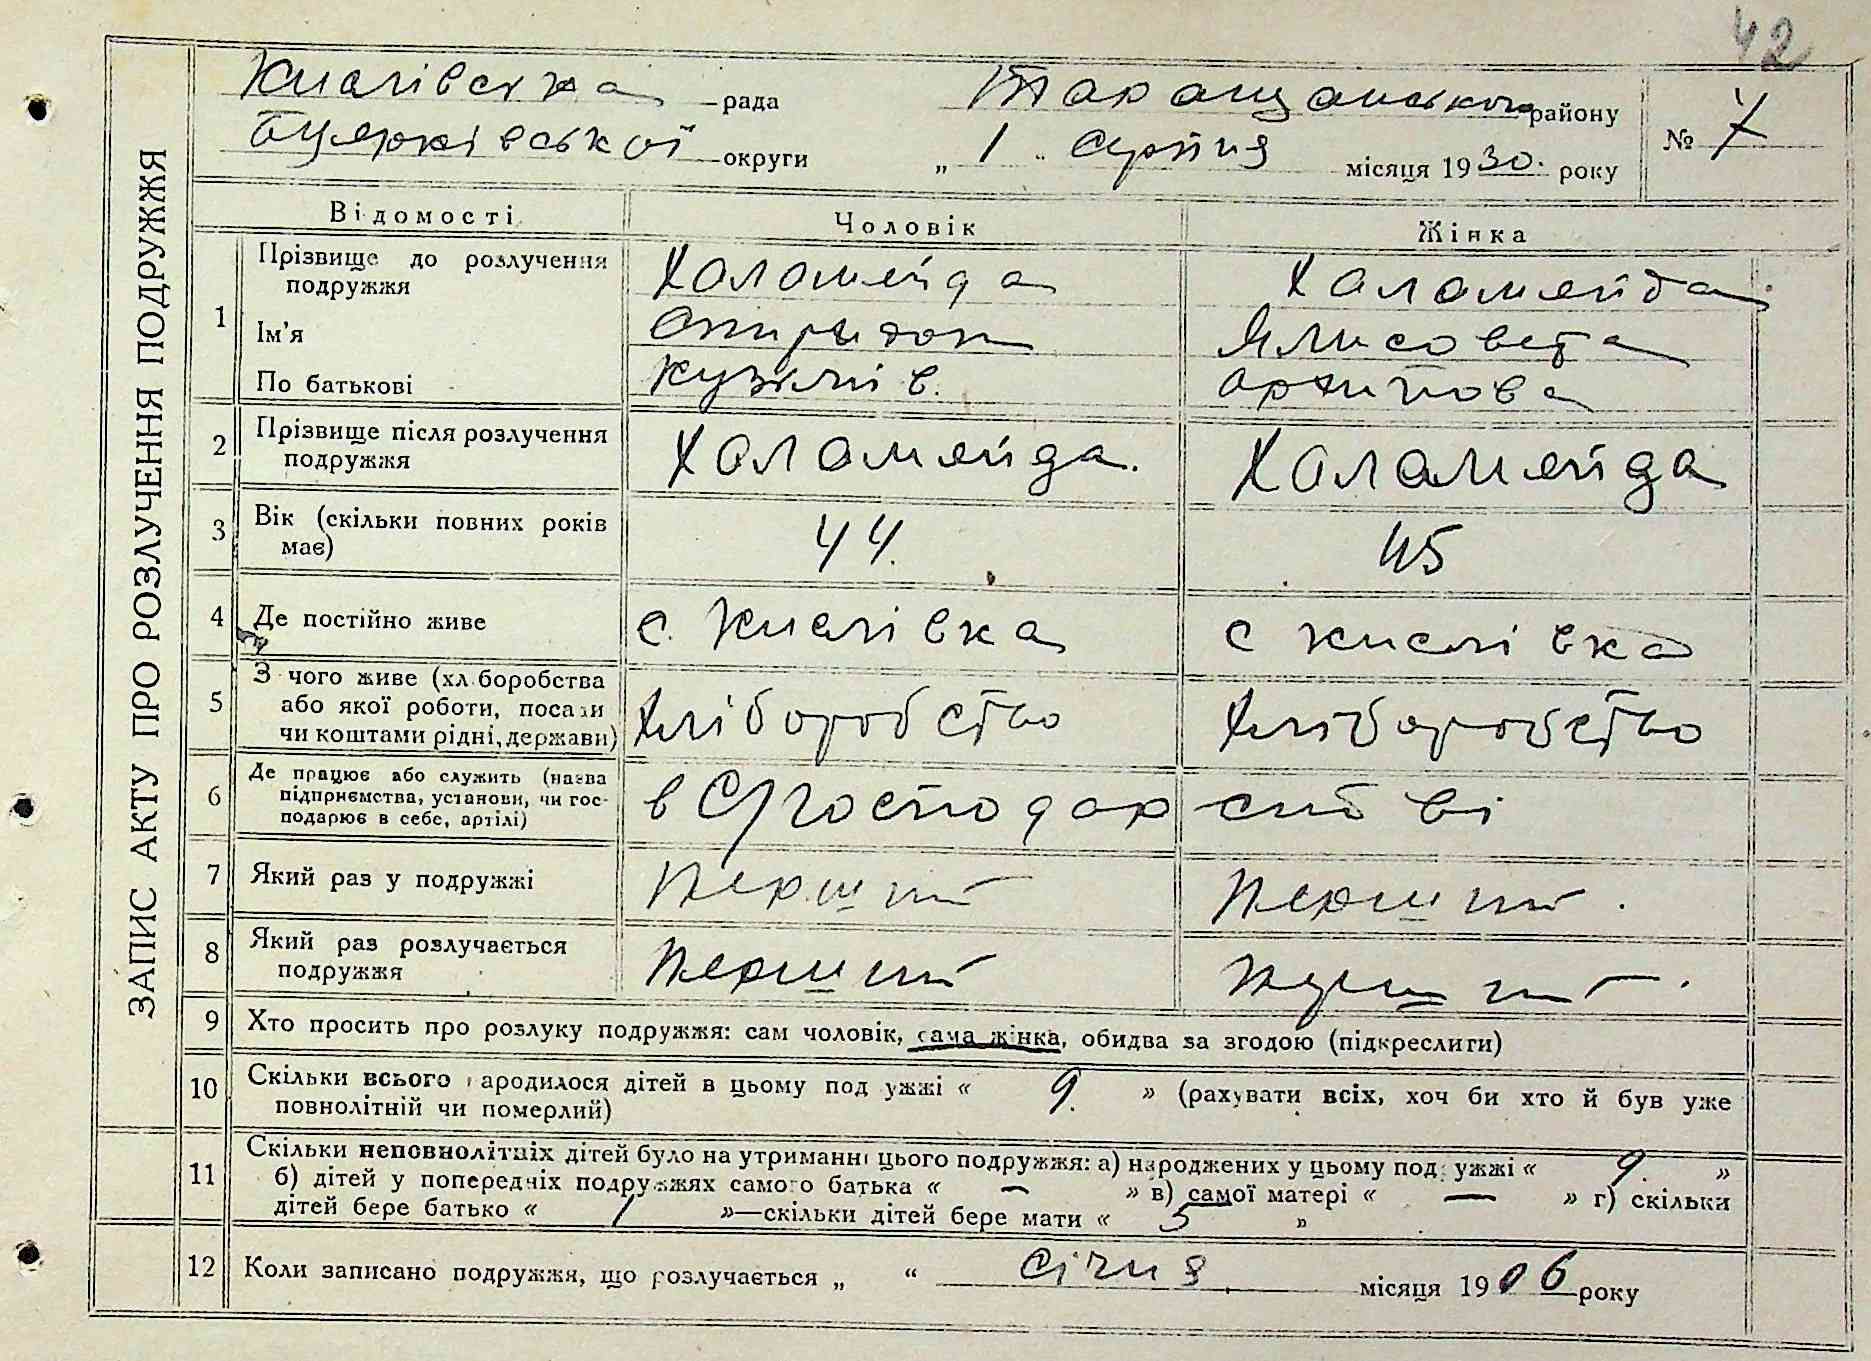 42
Кислівська рада Таращанського району № 7
округи „ 1 “ серпня місяця 1930. року
ЗАПИС АКТУ ПРО РОЗЛУЧЕННЯ ПОДРУЖЖЯ
Відомості Чоловік Жінка
1 Прізвище до розлучення подружжя Халамейда Халамейда
Ім'я Спиридон Ялисовета
По батькові Кузьмів. Архипова
2 Прізвище після розлучення подружжя Халамейда. Халамейда
3 Вік (скільки повних років має) 44. 45
4 Де постійно живе с. Кислівка с Кислівка
5 З чого живе (хл боробства або якої роботи, посади чи коштами рідні, держави) Хліборобство Хліборобство
6 Де працює або служить (назва підприємства, установи, чи господарює в себе, артілі) в С/господарстві
7 Який раз у подружжі Перший Перший.
8 Який раз розлучається подружжя Перший Перший.
9 Хто просить про розлуку подружжя: сам чоловік, сама жінка, обидва за згодою (підкреслити)
10 Скільки всього народилося дітей в цьому под ужжі « 9. » (рахувати всіх, хоч би хто й був уже
повнолітній чи померлий)
11 Скільки неповнолітніх дітей було на утриманні цього подружжя: а) народжених у цьому под ужжі « 9. »
б) дітей у попередніх подружжях самого батька « — » в) самої матері « — » г) скільки
дітей бере батько « 1 »—скільки дітей бере мати « 5 »
12 Коли записано подружжя, що розлучається „ “ Січня місяця 1906 року